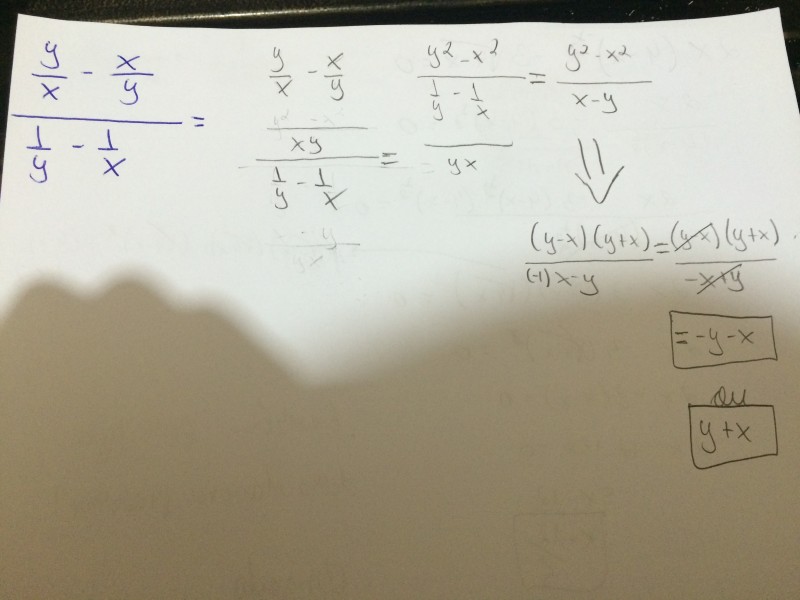 y/x - x/y
/ 1/y - 1/x =
y/x - x/y
xy
/ 1/y - 1/x =
y² - x²
/ 1/y - 1/x =
yx
y² - x²
/ x - y
⇓
(y-x)(y+x) / (-1)x-y = (y-x)(y+x) / -x+y
= -y-x
ou
y+x